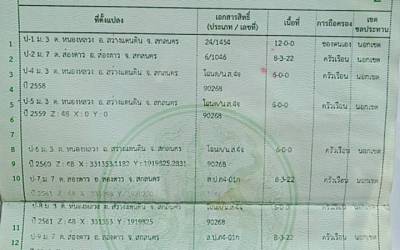 ที่ตั้งแปลง เอกสารสิทธิ์ (ประเภท / เลขที่) เนื้อที่ การถือครอง เขตชลประทาน
1 ป-1 ม. 3 ต. หนองหลวง อ. สว่างแดนดิน จ. สกลนคร 24/1454 12-0-0 ของตนเอง นอกเขต
2 ป-2 ม. 7 ต. ส่องดาว อ. ส่องดาว จ. สกลนคร 6/1046 8-3-22 ครัวเรือน นอกเขต
4 ม. 3 ต. หนองหลวง อ. สว่างแดนดิน จ. สกลนคร โฉนด/น.ส.4จ 6-0-0 ครัวเรือน นอกเขต
ปี 2558 90268
5 ป-5 ม. 3 ต. หนองหลวง อ. สว่างแดนดิน จ. สกลนคร โฉนด/น.ส.4จ 6-0-0 ครัวเรือน นอกเขต
ปี 2559 Z : 48 X : 0 Y : 0 90268
8 ป-6 ม. 3 ต. หนองหลวง อ. สว่างแดนดิน จ. สกลนคร โฉนด/น.ส.4จ 6-0-0 ครัวเรือน นอกเขต
9 ปี 2560 Z : 48 X : 331353.1182 Y : 1919825.2831 90268
10 ป-7 ม. 7 ต. ส่องดาว อ. ส่องดาว จ. สกลนคร ส.ป.ก4-01ก 8-3-22 ครัวเรือน นอกเขต
ม. 3 ต. หนองหลวง อ. สว่างแดนดิน จ. สกลนคร 6-0-0 ครัวเรือน นอกเขต
11 ปี 2561 Z : 48 X : 331353 Y : 1919825 90268
12 ป-9 ม. 7 ต. ส่องดาว อ. ส่องดาว จ. สกลนคร ส.ป.ก4-01ก 8-3-22 ครัวเรือน นอกเขต